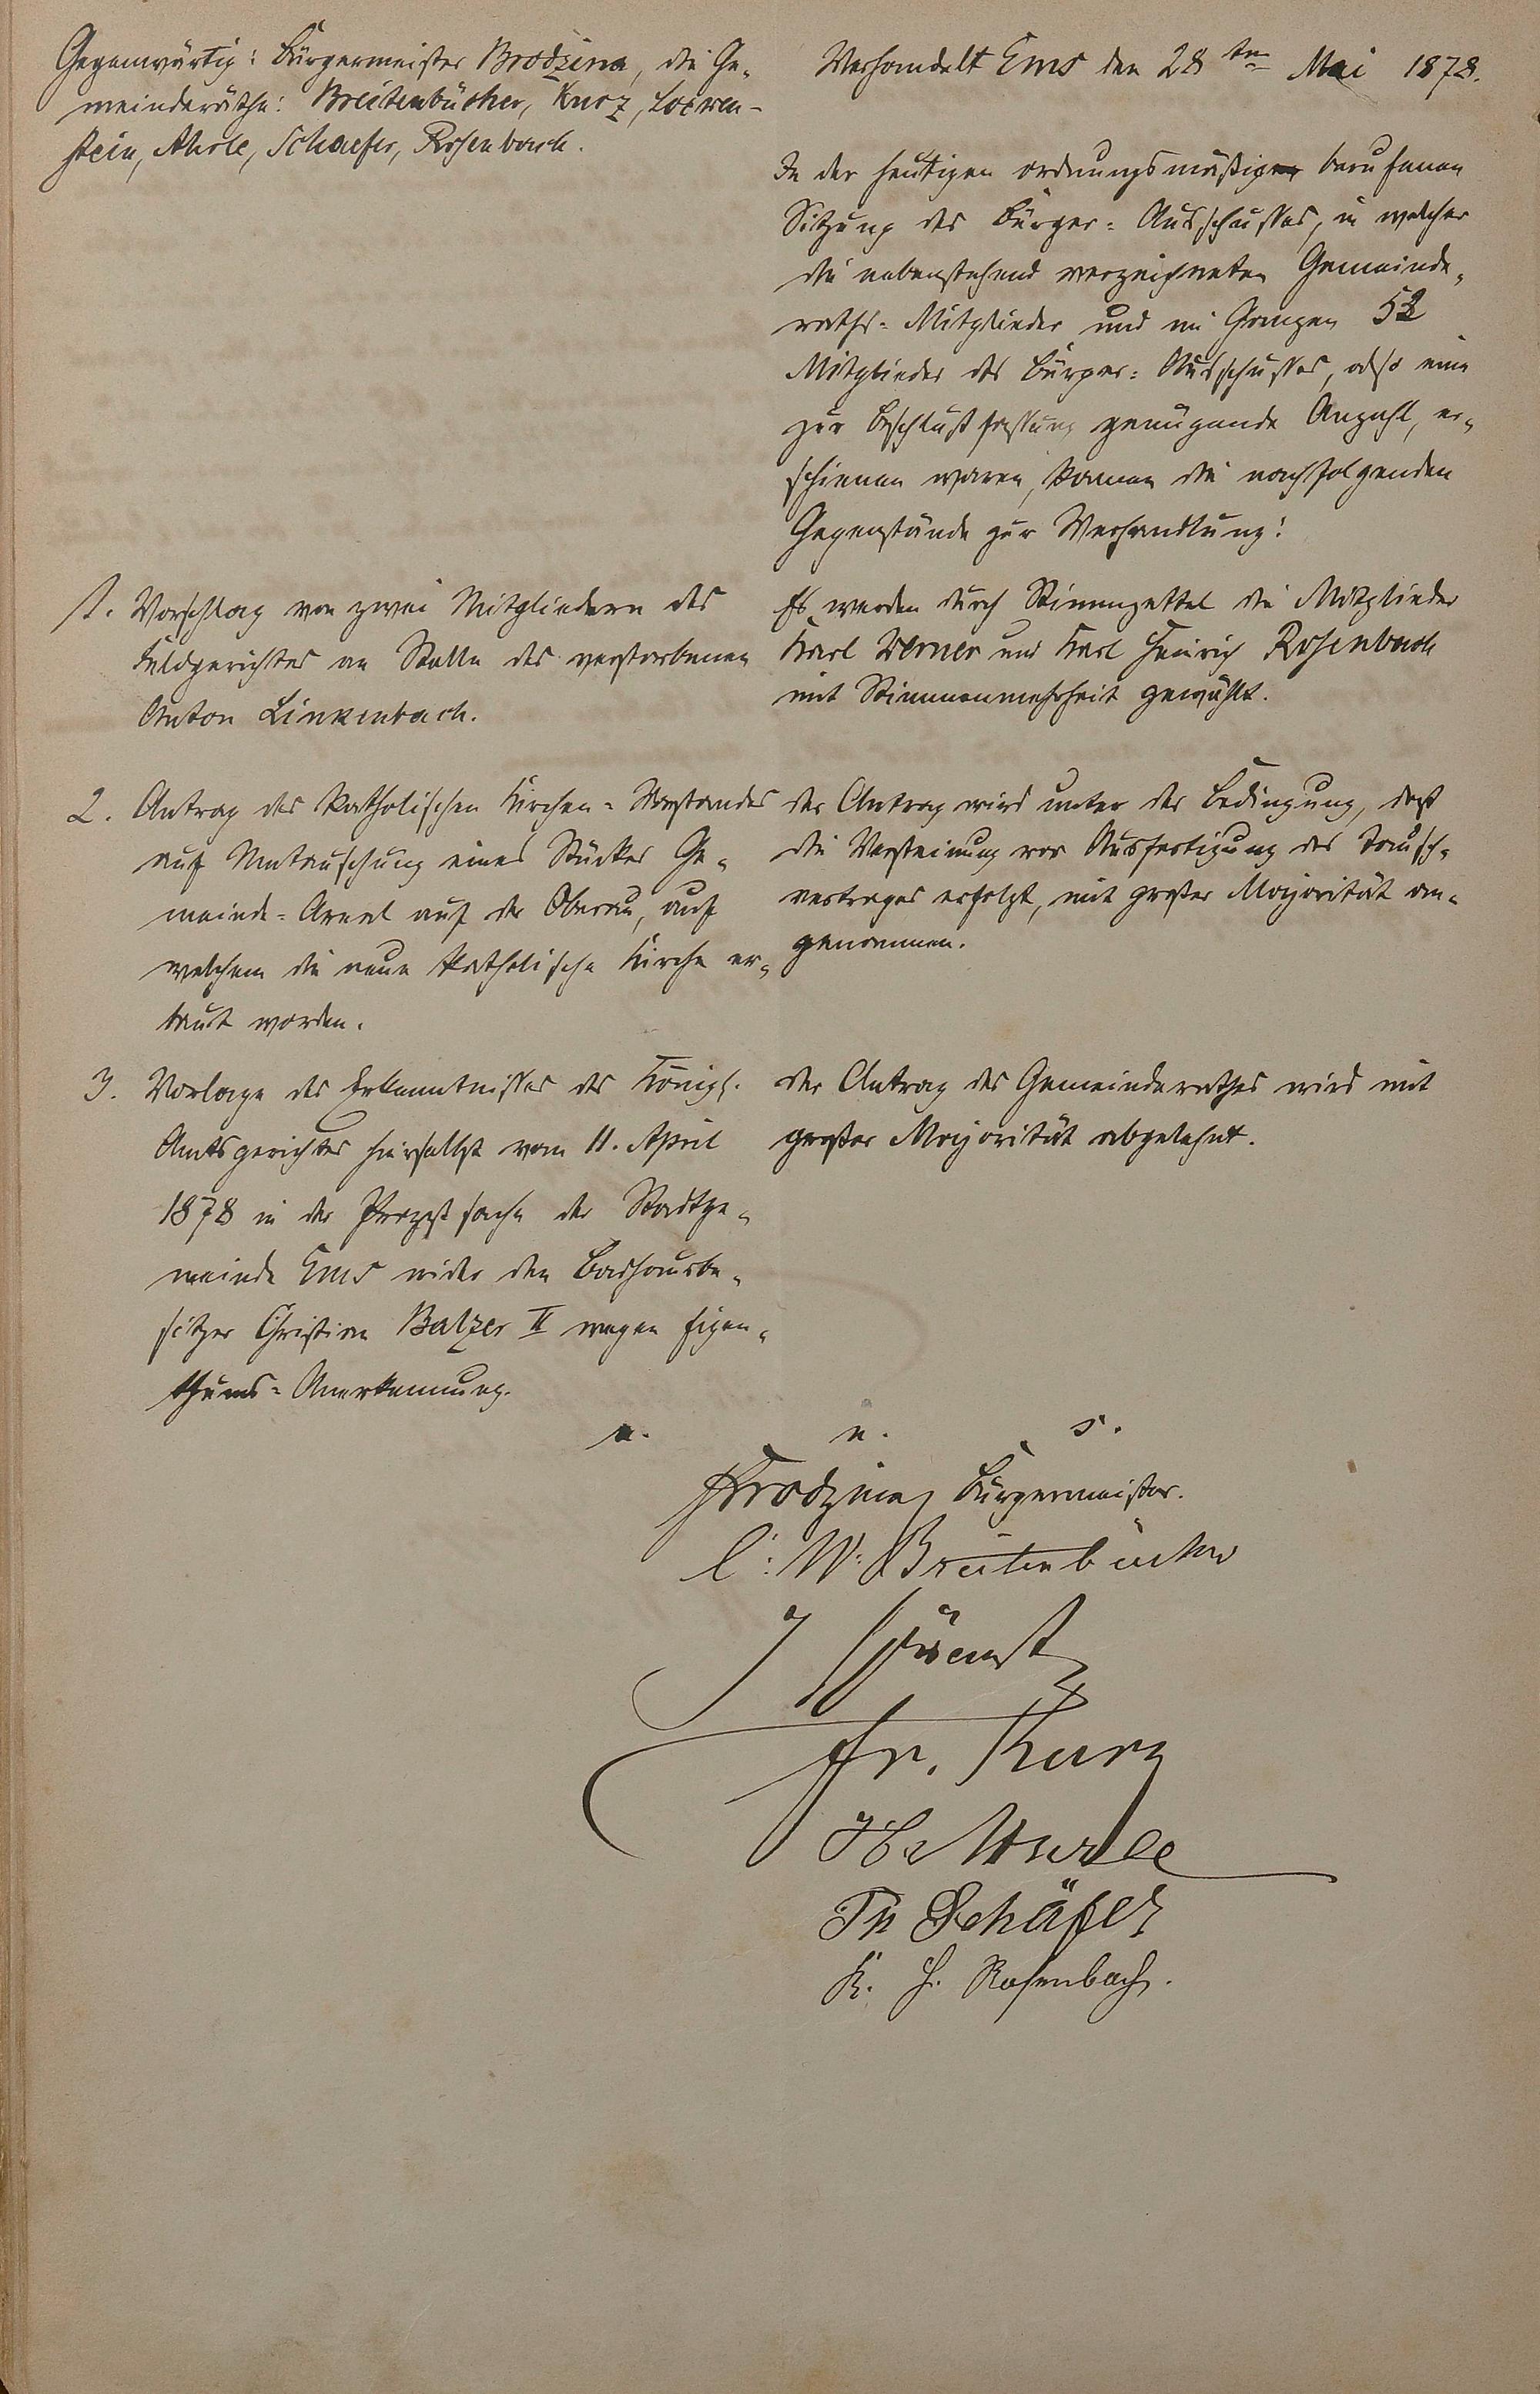 Gegenwärtig: Bürgermeister Brodzina, die Ge-
meinderäthe: Breitenbücher, Kurz, Loewen-
stein, Ahrle, Schaefer, Rosenbach.
Verhandelt Ems den 28ten Mai 1878.
In der heutigen ordnungsmäßig berufenen
Sitzung des Bürger-Ausschusses, in welcher
die nebenstehend verzeichneten Gemeinde-
raths-Mitglieder und im Ganzen 52
Mitglieder des Bürger-Ausschusses, also eine
zur Beschlußfassung genügende Anzahl, er-
schienen waren, kamen die nachfolgenden
Gegenstände zur Verhandlung:
1. Vorschlag von zwei Mitgliedern des
Feldgerichtes an Stelle des verstorbenen
Anton Linkenbach.
Es werden durch Stimmzettel die Mitglieder
Karl Werner und Karl Heinrich Rosenbach
mit Stimmenmehrheit gewählt.
2. Antrag des katholischen Kirchen-Vorstandes
auf Umtauschung eines Stückes Ge-
meinde-Areal auf der Oberau, auf
welchem die neue katholische Kirche er-
baut worden.
Der Antrag wird unter der Bedingung, daß
die Versteinung vor Ausfertigung des Tausch-
vertrages erfolgt, mit großer Majorität an-
genommen.
3. Vorlage des Erkenntnisses des Königl.
Amtsgerichtes hierselbst vom 11. April
1878 in der Prozeßsache der Stadtge-
meinde Ems wider den Badhausbe-
sitzer Christian Balzer II wegen Eigen-
thums-Anerkennung.
Der Antrag des Gemeinderathes wird mit
großer Majorität abgelehnt.
a. u. s.
Brodzina Bürgermeister.
C: W: Breitenbücher
Fr. Kurz
Ahrle
Th Schäfer
K. H. Rosenbach.